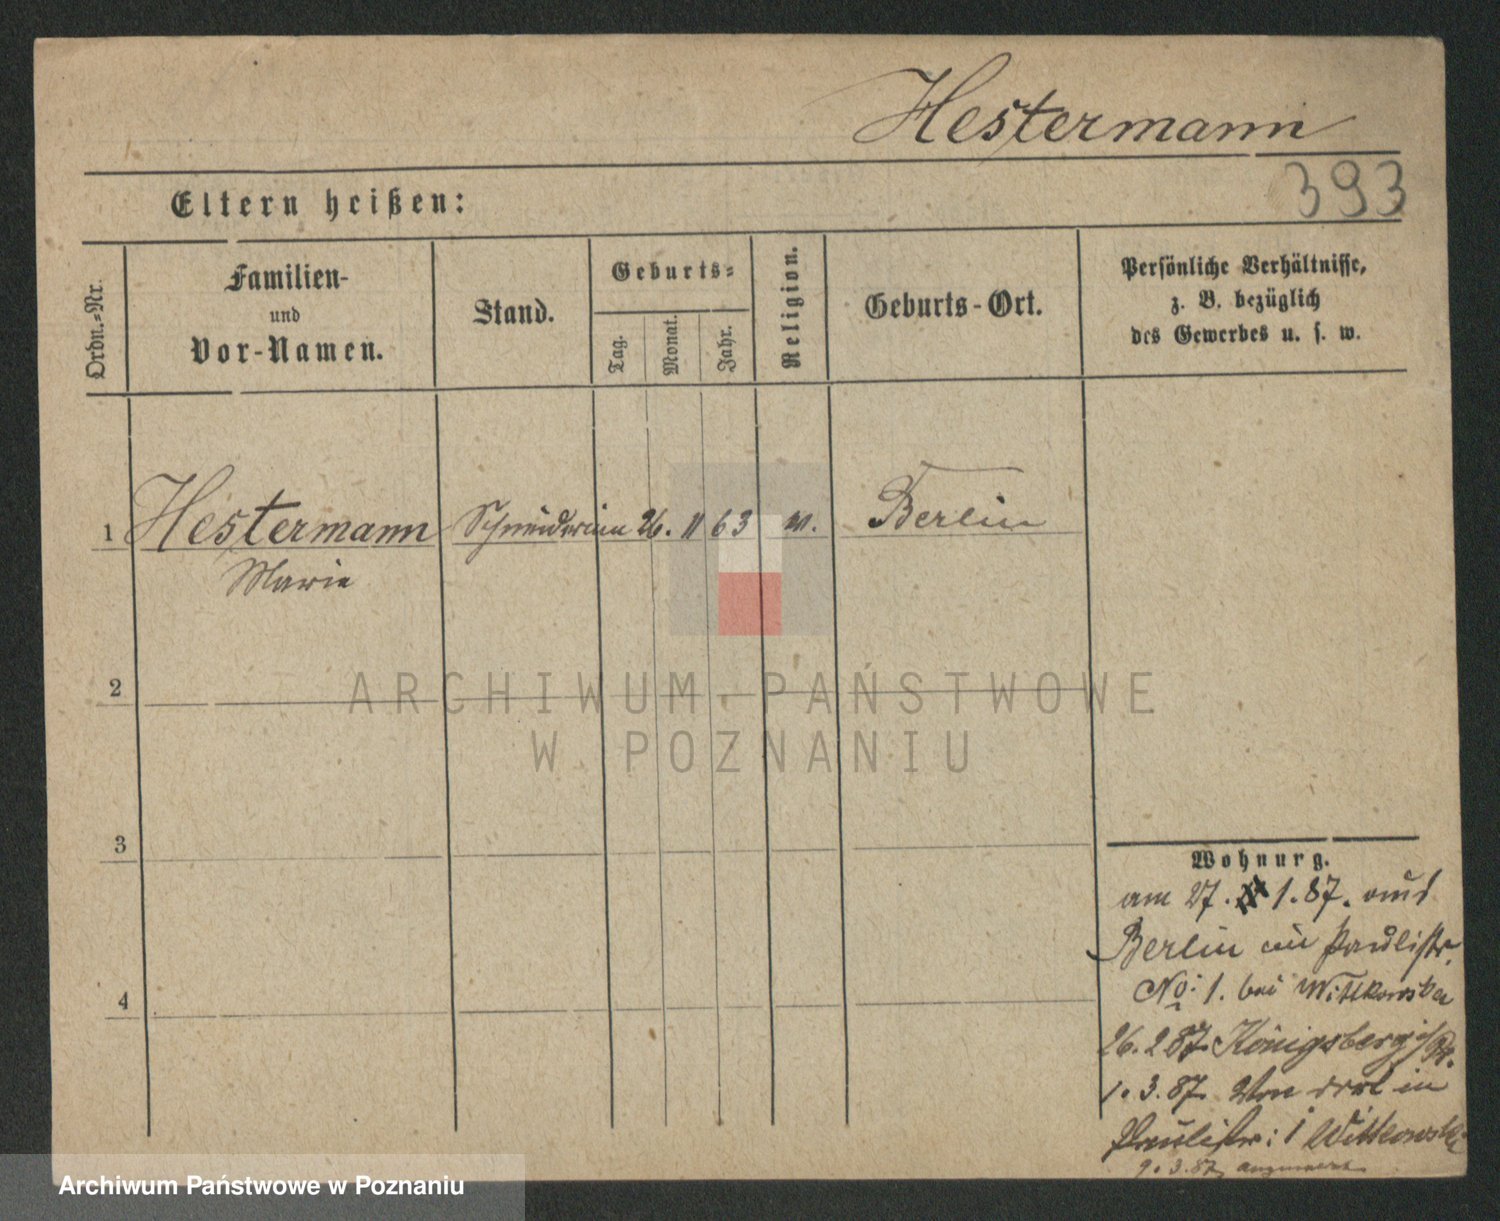 Hestermann
393
Eltern heißen:
Ordn.-Nr.
Familien-
und
Vor-Namen.
Stand.
Geburts-
Tag.
Monat.
Jahr.
Religion.
Geburts-Ort.
Persönliche Verhältnisse,
z. B. bezüglich
des Gewerbes u. s. w.
1 Hestermann Schneiderin 26. 11 63 Berlin
Marie
2
3
4
Wohnurg.
am 27. 1. 87. aus
Berlin in Paulistr.
No: 1. bei Wittkowska
26. 2 87. Königsberg i/Pr.
1. 3. 87. Von dort in
Paulistr: 1 Wittkowska
9. 3. 87.
ARCHIWUM PAŃSTWOWE
W POZNANIU
Archiwum Państwowe w Poznaniu